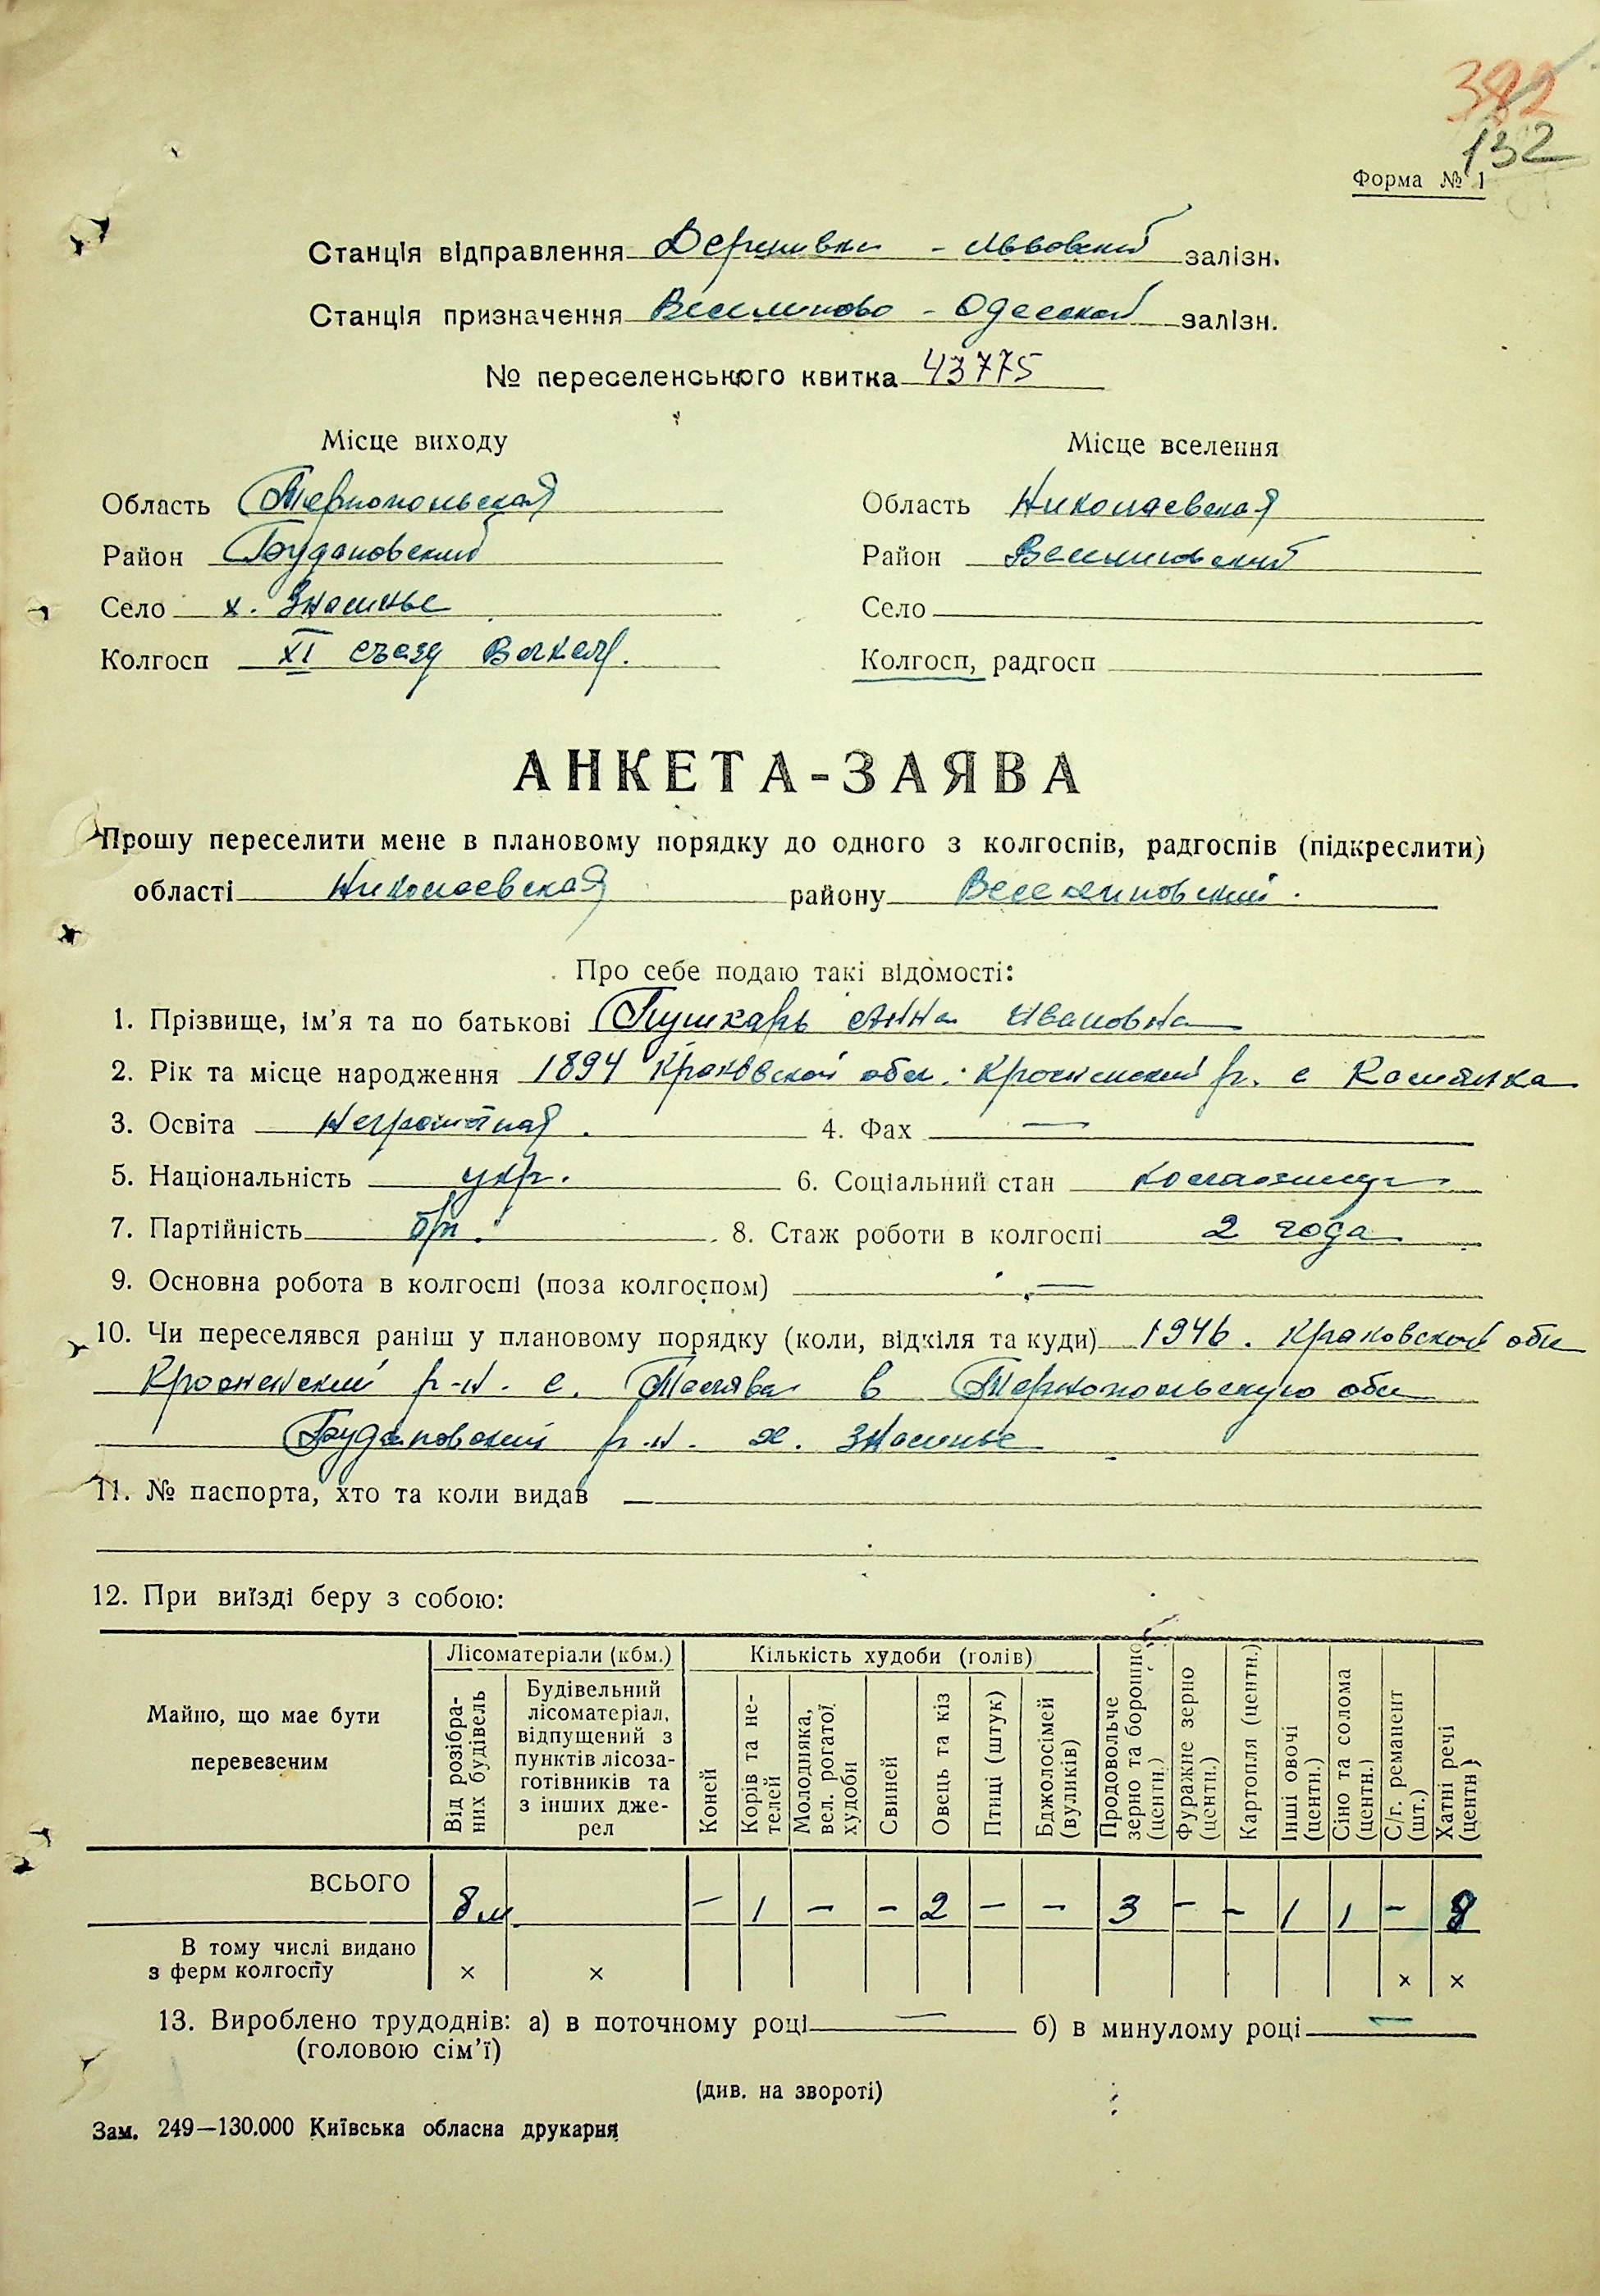 382
132
Форма № 1
Станція відправлення - Львовской залізн.
Станція призначення Веселиново - Одесской залізн.
№ переселенського квитка 43775
Місце виходу Місце вселення
Область Тернопольская Область Николаевская
Район Будановский Район Веселиновский
Село х. Село
Колгосп XI съезд Колгосп, радгосп
АНКЕТА-ЗАЯВА
Прошу переселити мене в плановому порядку до одного з колгоспів, радгоспів (підкреслити)
області Николаевская району Веселиновский.
Про себе подаю такі відомості:
1. Прізвище, ім'я та по батькові Пушкарь Анна Ивановна
2. Рік та місце народження 1894 Краковской обл. Кросненский р. с
3. Освіта Неграмотная. 4. Фах —
5. Національність укр. 6. Соціальний стан колхозница
7. Партійність бп. 8. Стаж роботи в колгоспі 2 года
9. Основна робота в колгоспі (поза колгоспом) —
10. Чи переселявся раніш у плановому порядку (коли, відкіля та куди) 1946. Краковской обл
Кросненский р-н. с. в Тернопольскую обл
Будановский р-н. х.
11. № паспорта, хто та коли видав —
12. При виїзді беру з собою:
Майно, що має бути перевезеним
Лісоматеріали (кбм.)
Від розібраних будівель
Будівельний лісоматеріал, відпущений з пунктів лісозаготівників та з інших джерел
Кількість худоби (голів)
Коней
Корів та нетелей
Молодняка, вел. рогатої худоби
Свиней
Овець та кіз
Птиці (штук)
Бджолосімей (вуликів)
Продовольче зерно та борошно (центн.)
Фуражне зерно (центн.)
Картопля (центн.)
Інші овочі (центн.)
Сіно та солома (центн.)
С/г. реманент (шт.)
Хатні речі (центн)
ВСЬОГО 8м - 1 - - 2 - - 3 - - 1 1 - 8
В тому числі видано
з ферм колгоспу × × × ×
13. Вироблено трудоднів: а) в поточному році — б) в минулому році —
(головою сім'ї)
(див. на звороті)
Зам. 249—130.000 Київська обласна друкарня